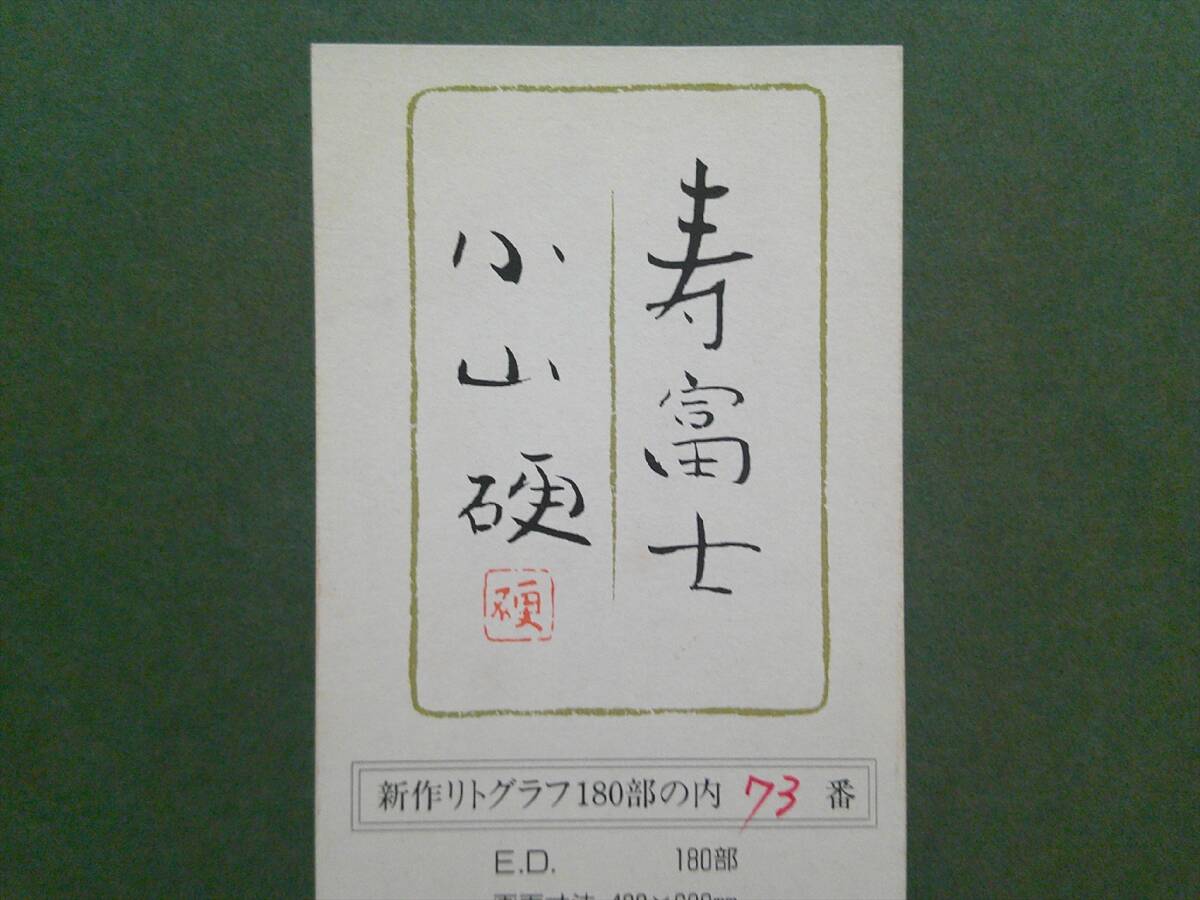 寿富士
小山硬
硬
新作リトグラフ180部の内 73 番
E.D. 180部